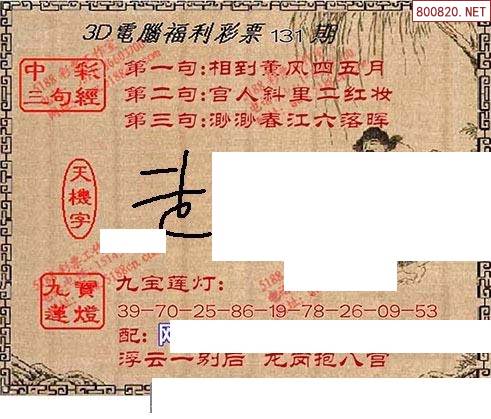 800820.NET
3D電腦福利彩票131期
中彩
三句經
第一句:相到薰风四五月
第二句:宫人斜里二红妆
第三句:渺渺春江六落晖
天機字
九寶
蓮燈
九宝莲灯:
39-70-25-86-19-78-26-09-53
配:
浮云一别后 龙岗抱八宫